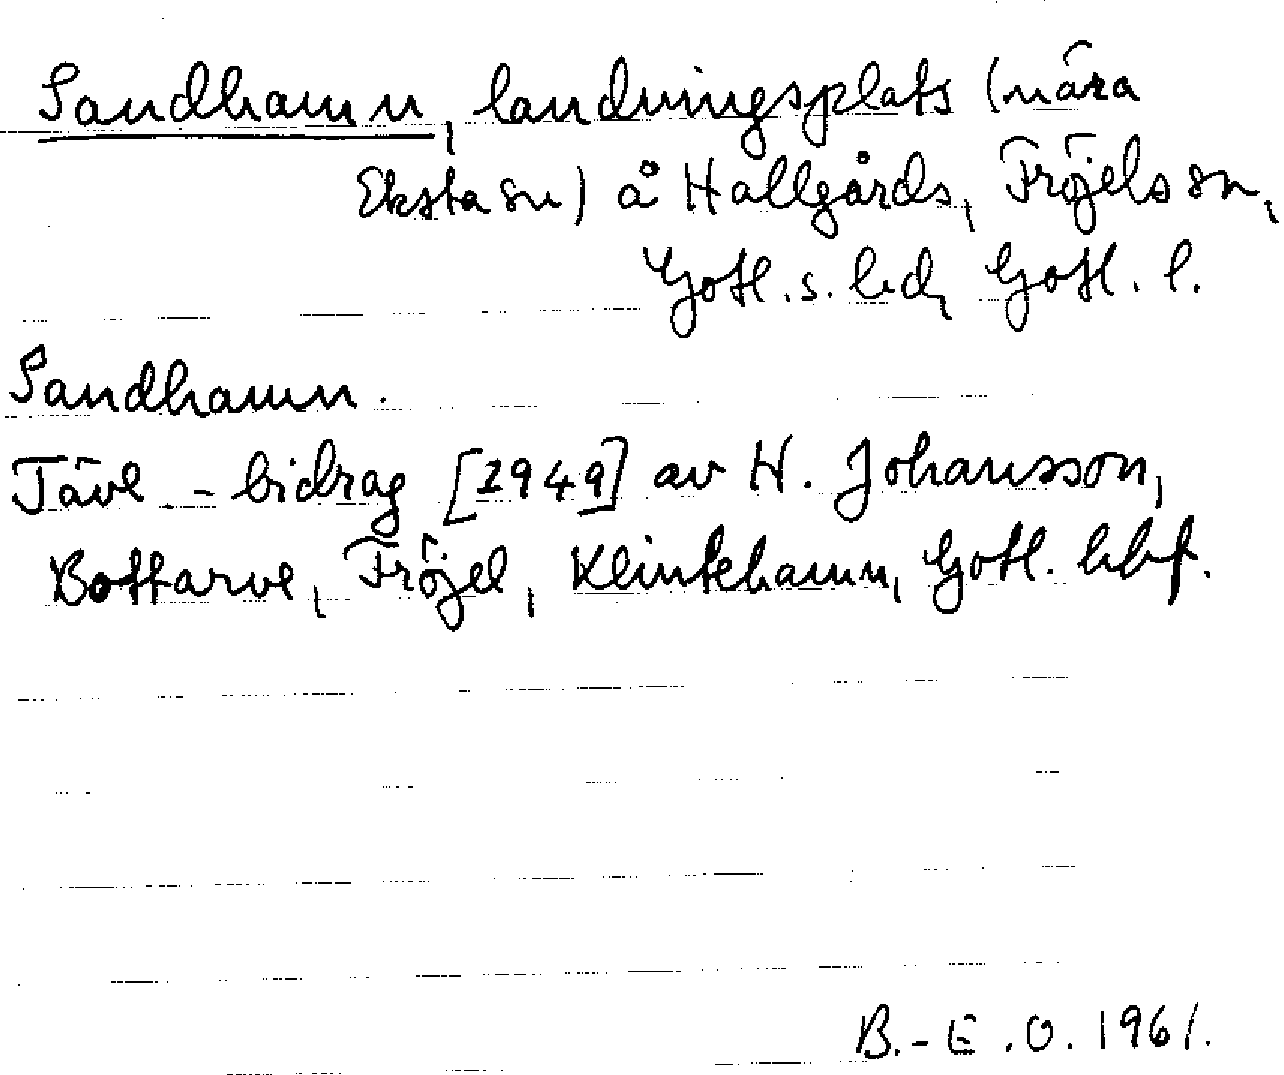 Sandhamn, landningsplats (nära
Eksta sn) å Hallgårds, Fröjels sn,
Gotl. s. hd, Gotl. l.
Sandhamn.
Tävl.-bidrag [1949] av H. Johansson,
Bottarve, Fröjel, Klintehamn, Gotl. hbf.
B.-E.O. 1961.